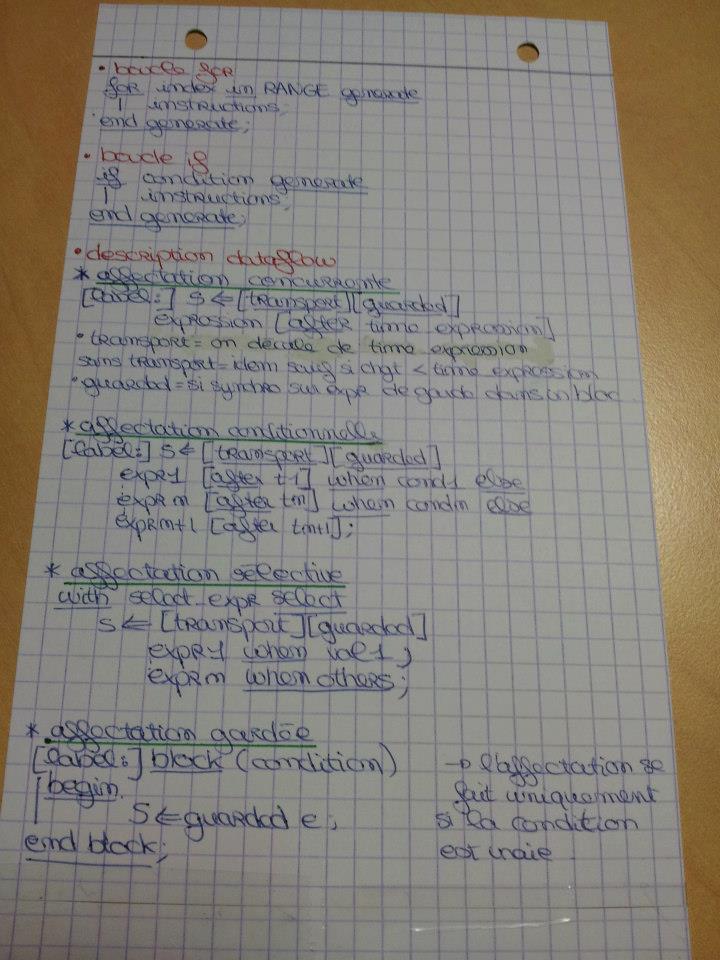 • boucle for
for index in RANGE generate
| instructions;
end generate;
• boucle if
if condition generate
| instructions;
end generate;
• description dataflow
* affectation concurrente
[label:] s <= [transport][guarded]
expression [after time expression]
• transport = on décale de time expression
sans transport = idem sauf si chgt < time expression
• guarded = si synchro sur expr de garde dans un bloc
* affectation conditionnelle
[label:] s <= [transport][guarded]
expr1 [after t1] when cond1 else
exprn [after tn] when condn else
exprn+1 [after tn+1];
* affectation sélective
with select_expr select
s <= [transport][guarded]
expr1 when val1,
exprn when others;
* affectation gardée
[label:] block (condition)
begin
S <= guarded e;
end block;
→ l'affectation se
fait uniquement
si la condition
est vraie